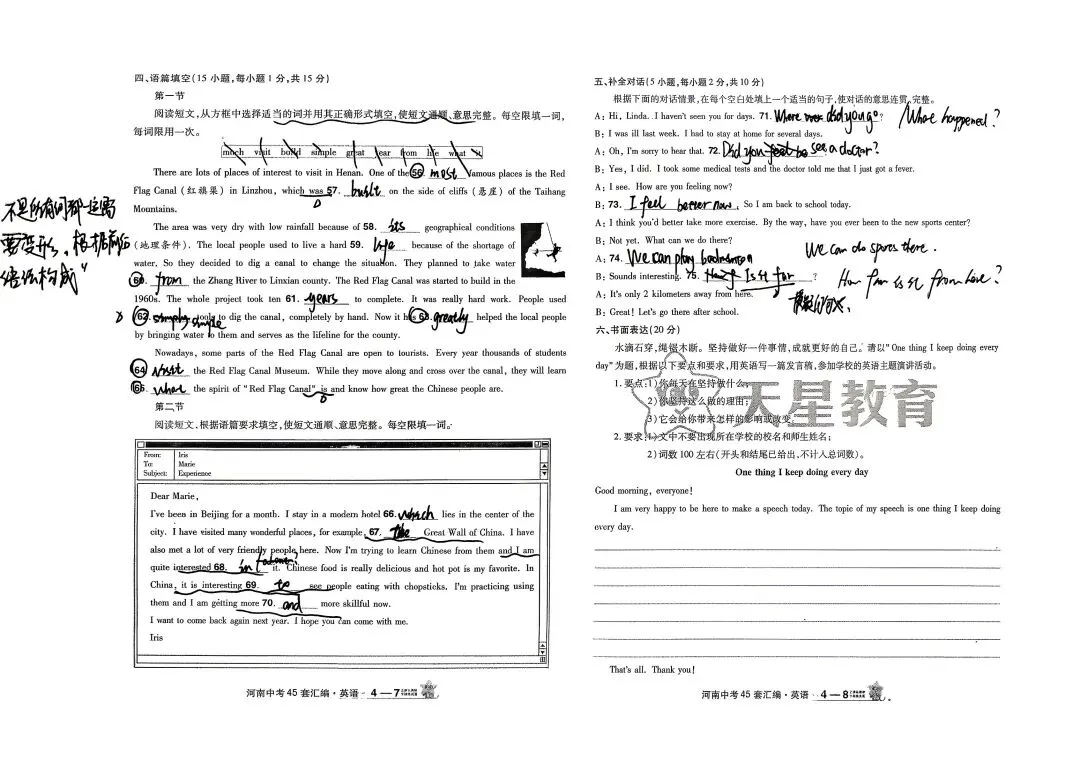 四、语篇填空(15 小题,每小题 1 分,共 15 分)
第一节
阅读短文,从方框中选择适当的词并用其正确形式填空,使短文通顺、意思完整。每空限填一词,
每词限用一次。
much visit build simple great year from life what it
There are lots of places of interest to visit in Henan. One of the 56. most famous places is the Red
Flag Canal (红旗渠) in Linzhou, which was 57. built on the side of cliffs (悬崖) of the Taihang
Mountains.
The area was very dry with low rainfall because of 58. its geographical conditions
(地理条件). The local people used to live a hard 59. life because of the shortage of
water. So they decided to dig a canal to change the situation. They planned to take water
60. from the Zhang River to Linxian county. The Red Flag Canal was started to build in the
1960s. The whole project took ten 61. years to complete. It was really hard work. People used
62. simple tools to dig the canal, completely by hand. Now it has 63. greatly helped the local people
by bringing water to them and serves as the lifeline for the county.
Nowadays, some parts of the Red Flag Canal are open to tourists. Every year thousands of students
64. visit the Red Flag Canal Museum. While they move along and cross over the canal, they will learn
65. what the spirit of "Red Flag Canal" is and know how great the Chinese people are.
第二节
阅读短文,根据语篇要求填空,使短文通顺、意思完整。每空限填一词。
From: Iris
To: Marie
Subject: Experience
Dear Marie,
I've been in Beijing for a month. I stay in a modern hotel 66. which lies in the center of the
city. I have visited many wonderful places, for example, 67. the Great Wall of China. I have
also met a lot of very friendly people here. Now I'm trying to learn Chinese from them and I am
quite interested 68. in it. Chinese food is really delicious and hot pot is my favorite. In
China, it is interesting 69. to see people eating with chopsticks. I'm practicing using
them and I am getting more 70. and more skillful now.
I want to come back again next year. I hope you can come with me.
Iris
河南中考 45 套汇编·英语 4—7
五、补全对话(5 小题,每小题 2 分,共 10 分)
根据下面的对话情景,在每个空白处填上一个适当的句子,使对话的意思连贯、完整。
A: Hi, Linda. I haven't seen you for days. 71. Where did you go? What happened?
B: I was ill last week. I had to stay at home for several days.
A: Oh, I'm sorry to hear that. 72. Did you see a doctor?
B: Yes, I did. I took some medical tests and the doctor told me that I just got a fever.
A: I see. How are you feeling now?
B: 73. I feel better now. So I am back to school today.
A: I think you'd better take more exercise. By the way, have you ever been to the new sports center?
B: Not yet. What can we do there?
We can do sports there.
A: 74. We can play badminton
B: Sounds interesting. 75. Is it far? How far is it from here?
A: It's only 2 kilometers away from here.
B: Great! Let's go there after school.
六、书面表达(20 分)
水滴石穿,绳锯木断。坚持做好一件事情,成就更好的自己。请以"One thing I keep doing every
day"为题,根据以下要点和要求,用英语写一篇发言稿,参加学校的英语主题演讲活动。
1. 要点:1)你每天在坚持做什么;
2)你坚持这么做的理由;
3)它会给你带来怎样的影响或改变。
2. 要求:1)文中不要出现所在学校的校名和师生姓名;
2)词数 100 左右(开头和结尾已给出,不计入总词数)。
天星教育
One thing I keep doing every day
Good morning, everyone!
I am very happy to be here to make a speech today. The topic of my speech is one thing I keep doing
every day.
That's all. Thank you!
河南中考 45 套汇编·英语 4—8